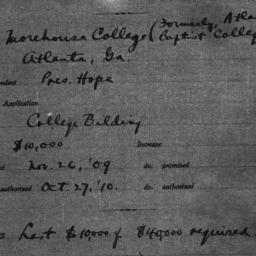 Morehouse College (Formerly, Atla
Baptist Colleg
Atlanta, Ga.
Pres. Hope
Application
College Bilding
$10,000 Increase
Nov. 26, '09 do. promised
authorized Oct. 27, '10. do. authorized
Last $10,000 of $40,000 required